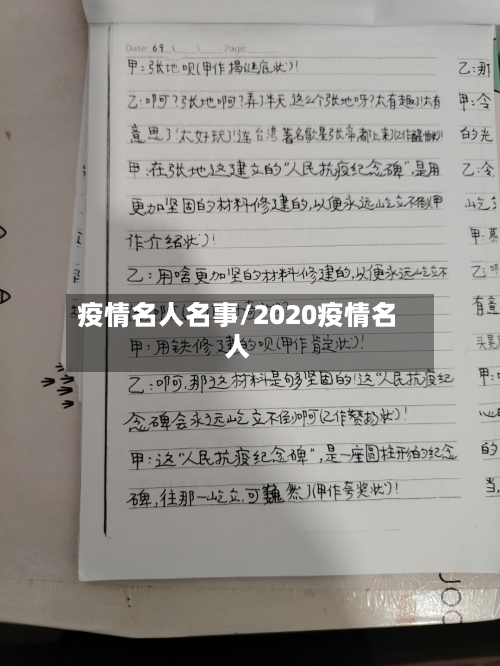 Date: 69
Page:
甲:张地呗(甲作揭谜底状)!
乙:啊?张地啊?弄了半天,这么个张地呀?太有趣了!太有
意思了!太好玩了!连台湾著名歌星张帝都上来了(乙作醒悟状)!
甲:在张地这建立的“人民抗疫纪念碑”,是用
更加坚固的材料修建的,以便永远屹立不倒(甲
作介绍状)!
乙:用啥更加坚的材料修建的,以便永远屹立不
疫情名人名事/2020疫情名
人
甲:用铁修建的呗(甲作肯定状)!
乙:啊可,那这材料是够坚固的!这“人民抗疫纪
念碑会永远屹立不倒啊(乙作赞扬状)!
甲:这“人民抗疫纪念碑”,是一座圆柱形的纪念
碑,往那一屹立,可巍然了(甲作夸奖状)!
乙:那
甲:令
的光
乙:全
屹立
甲:慕
乙:啊
有意
甲:
的
当,